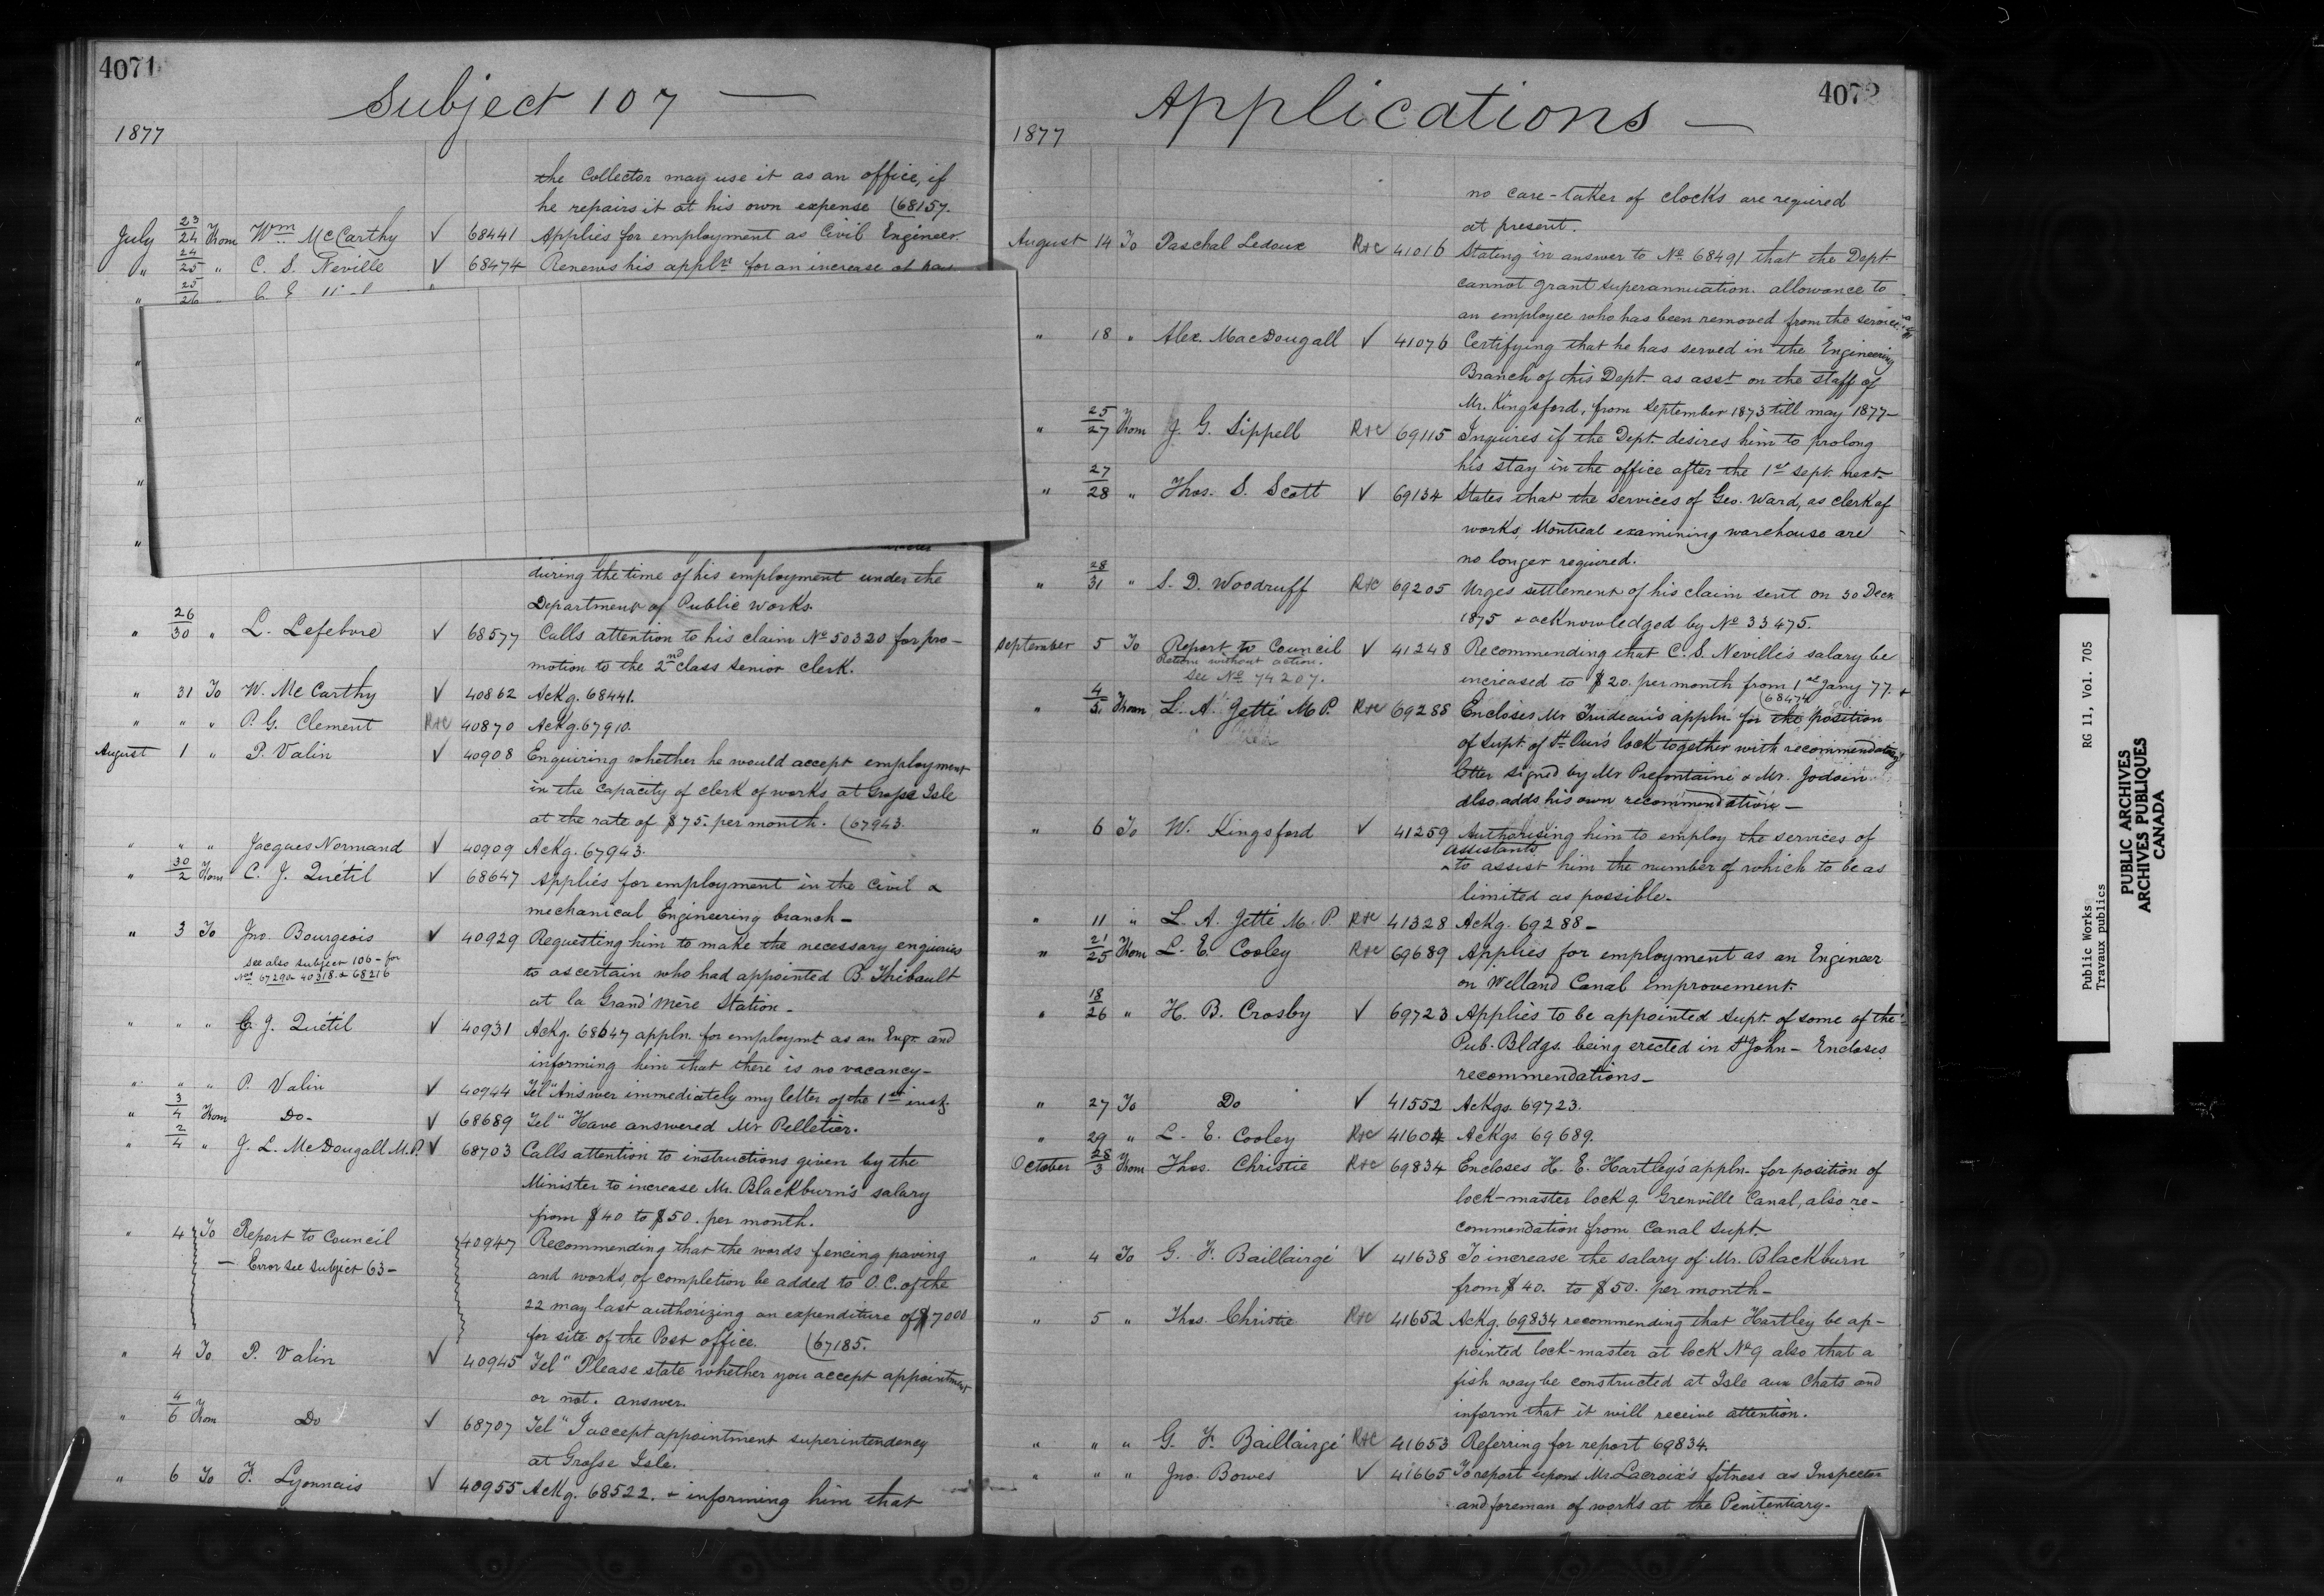 4071
Subject 107 —
1877
the Collector may use it as an office, if
he repairs it at his own expense (68157.
July 23/24 From Wm McCarthy √ 68441 Applies for employment as Civil Engineer.
" 24/25 " C. S. Neville √ 68474 Renews his appln for an increase of pay
" 25/26
"
"
"
"
during the time of his employment under the
Department of Public Works.
" 26/30 " L. Lefebvre √ 68577 Calls attention to his claim No 50320 for pro-
motion to the 2nd class senior clerk.
" 31 To W. McCarthy √ 40862 Ackg. 68441.
" " " P. G. Clement R&C 40870 Ackg. 67910.
August 1 " P. Valin √ 40908 Enquiring whether he would accept employment
in the capacity of clerk of works at Grosse Isle
at the rate of $75. per month. (67943.
" " " Jacques Normand √ 40909 Ackg. 67943.
" 30/2 From C. J. Quétil √ 68647 Applies for employment in the Civil &
mechanical Engineering branch —
" 3 To Jno. Bourgeois √ 40929 Requesting him to make the necessary enquiries
see also subject 106 - for
Nos 67290 40318 & 68216
to ascertain who had appointed B. Thibault
at la Grand'Mère Station —
" " " C. J. Quétil √ 40931 Ackg. 68647 appln. for employmt as an Engr. and
informing him that there is no vacancy —
" " " P. Valin √ 40944 Tel "Answer immediately my letter of the 1st inst.
" 3/4 From Do - √ 68689 Tel " Have answered Mr Pelletier.
" 2/4 " J. L. McDougall M.P. √ 68703 Calls attention to instructions given by the
Minister to increase Mr. Blackburn's salary
from $40 to $50. per month.
" 4 To Report to Council 40947 Recommending that the words fencing paving
— Error see subject 63 —
and works of completion be added to O.C. of the
22 may last authorizing an expenditure of $7000
for site of the Post office. (67185.
" 4 To P. Valin √ 40945 Tel " Please state whether you accept appointment
or not. answer.
" 4/6 From Do √ 68707 Tel " I accept appointment superintendency
at Grosse Isle.
" 6 To F. Lyonnais √ 40955 Ackg. 68522. & informing him that
4072
Applications —
1877
no care-taker of clocks are required
at present.
August 14 To Paschal Ledoux R&C 41016 Stating in answer to No 68491 that the Dept
cannot grant superannuation allowance to
an employee who has been removed from the service
" 18 " Alex. MacDougall √ 41076 Certifying that he has served in the Engineering
Branch of this Dept. as asst on the staff of
Mr. Kingsford, from September 1873 till may 1877 —
" 25/27 From J. G. Sippell R&C 69115 Inquires if the Dept. desires him to prolong
his stay in the office after the 1st sept. next —
" 27/28 " Thos. S. Scott √ 69134 States that the services of Geo. Ward, as clerk of
works, Montreal examining warehouse are
no longer required.
" 28/31 " S. D. Woodruff R&C 69205 Urges settlement of his claim sent on 30 Decr
1875 & acknowledged by No 33475.
September 5 To Report to Council √ 41248 Recommending that C. S. Neville's salary be
Return without action.
see No 74207.
increased to $20. per month from 1st Jany 77.
(68474
" 4/5 From L. A. Jetté M.P. R&C 69288 Encloses Mr Trudeau's appln. for the position
of supt. of St Our's lock together with recommendatory
letter signed by Mr Prefontaine & Mr. Jodoin
also adds his own recommendation —
" 6 To W. Kingsford √ 41259 Authorising him to employ the services of
assistants
to assist him the number of which to be as
limited as possible —
" 11 " L. A. Jetté M.P. R&C 41328 Ackg. 69288 —
" 21/25 From L. E. Cooley R&C 69689 Applies for employment as an Engineer
on Welland Canal improvement
" 18/26 " H. B. Crosby √ 69723 Applies to be appointed supt. of some of the
Pub. Bldgs. being erected in St John — Encloses
recommendations —
" 27 To Do √ 41552 Ackgs. 69723.
" 29 " L. E. Cooley R&C 41604 Ackgs 69689.
October 28/3 From Thos. Christie R&C 69834 Encloses H. E. Hartley's appln. for position of
lock-master lock 9 Grenville Canal, also re-
commendation from Canal Supt.
" 4 To G. F. Baillairgé √ 41638 To increase the salary of Mr. Blackburn
from $40. to $50. per month —
" 5 " Thos. Christie R&C 41652 Ackg. 69834 recommending that Hartley be ap-
pointed lock-master at lock No 9 also that a
fish way be constructed at Isle aux Chats and
inform that it will receive attention.
" " " G. F. Baillairgé R&C 41653 Referring for report 69834.
" " " Jno. Bowes √ 41665 To report upon Mr. Lacroix's fitness as Inspector
and foreman of works at the Penitentiary —
Public Works RG 11, Vol. 705
Travaux publics
PUBLIC ARCHIVES
ARCHIVES PUBLIQUES
CANADA